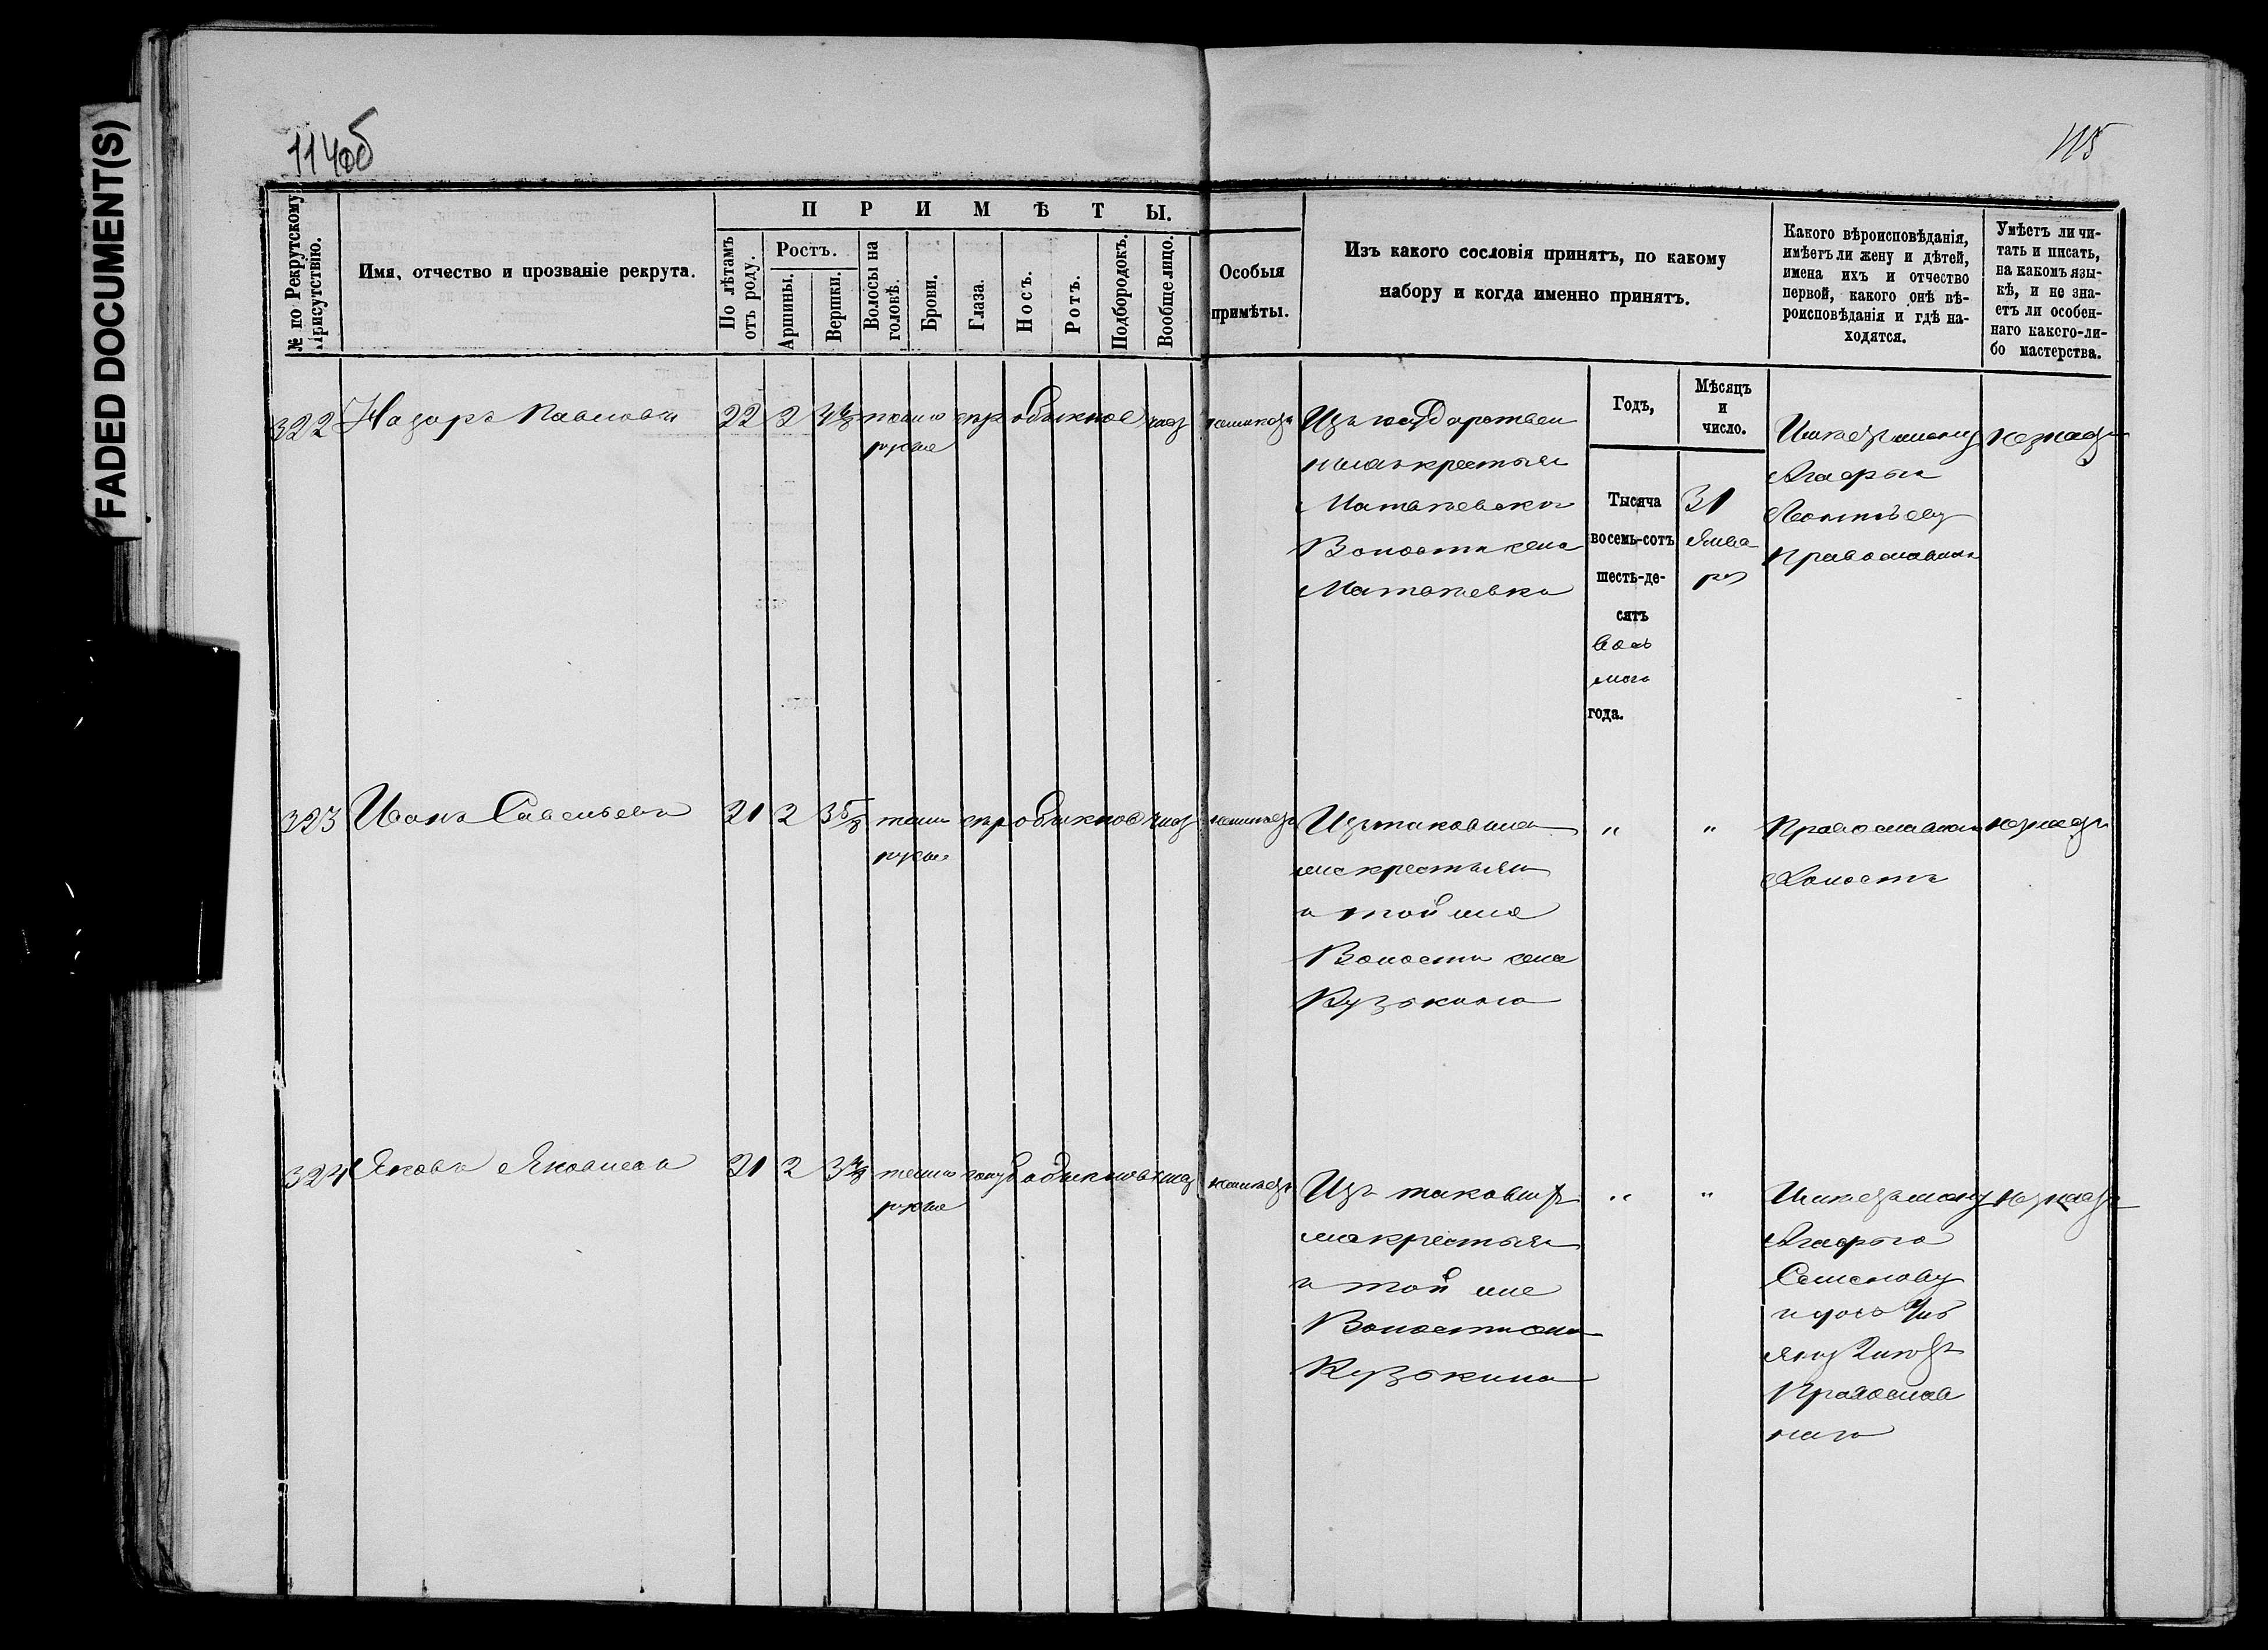 FADED DOCUMENT(S)
114об
115
№ по Рекрутскому присутствію.
Имя, отчество и прозваніе рекрута.
ПРИМѢТЫ.
По лѣтамъ отъ роду.
Ростъ.
Аршины.
Вершки.
Волосы на головѣ.
Брови.
Глаза.
Носъ.
Ротъ.
Подбородокъ.
Вообще лицо.
Особыя
примѣты.
Изъ какого сословія принятъ, по какому
набору и когда именно принятъ.
Какого вѣроисповѣданія,
имѣетъ ли жену и дѣтей,
имена ихъ и отчество
первой, какого онѣ вѣ-
роисповѣданія и гдѣ на-
ходятся.
Умѣетъ ли чи-
тать и писать,
на какомъ язы-
кѣ, и не зна-
етъ ли особен-
наго какого-ли-
бо мастерства.
Годъ,
Мѣсяцъ
и
число.
322 Назаръ Павловъ 22 2 темно сѣр обыкнов
русые
Изъ государствен
ныхъ крестьян
Волости села
Тысяча
восемь-сотъ
шесть-де-
сятъ
вось
мого
года.
31
Янва
ря
Имѣетъ жену
Агафью
Леонтьеву
православн
незнаетъ
323 Иванъ Савельевъ 21 2 3 5/8 темн сѣр обыкнов
русые
Изъ таковых
же крестьян
и той же
Волости села
Кузькина
" "
Православнаго
Холостъ
незнаетъ
324 Яковъ Яковлевъ 21 2 темно голуб обыкнов
русые
Изъ таковых
же крестьян
и той же
Волости села
Кузькина
" "
Имѣетъ жену
Агафью
Семенову
и дочь
Православ
наго
незнаетъ